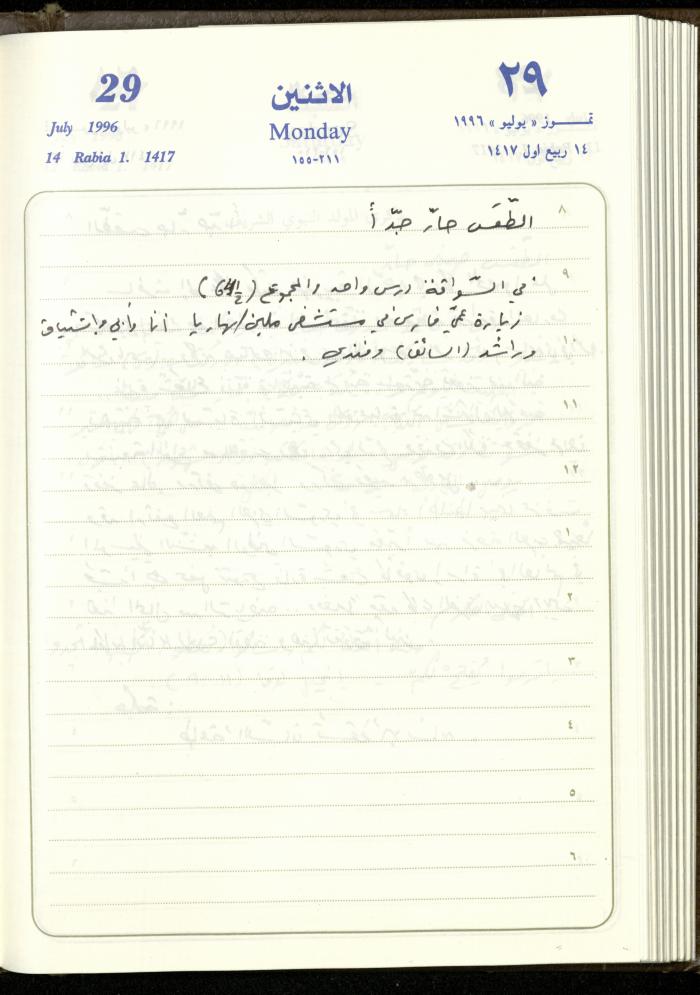 29
July 1996
14 Rabia 1. 1417
الاثنين
Monday
١٥٥-٢١١
٢٩
تمـــوز « يوليو » ١٩٩٦
١٤ ربيع اول ١٤١٧
٨
الطّقس حارّ جدّاً
٩
في السّواقة درس واحد والمجموع
زيارة عمّي فارس في مستشفى نهاريا أنا وأبي واشتياق
١٠
وراشد (السائق) وفندي .
١١
١٢
١
٢
٣
٤
٥
٦